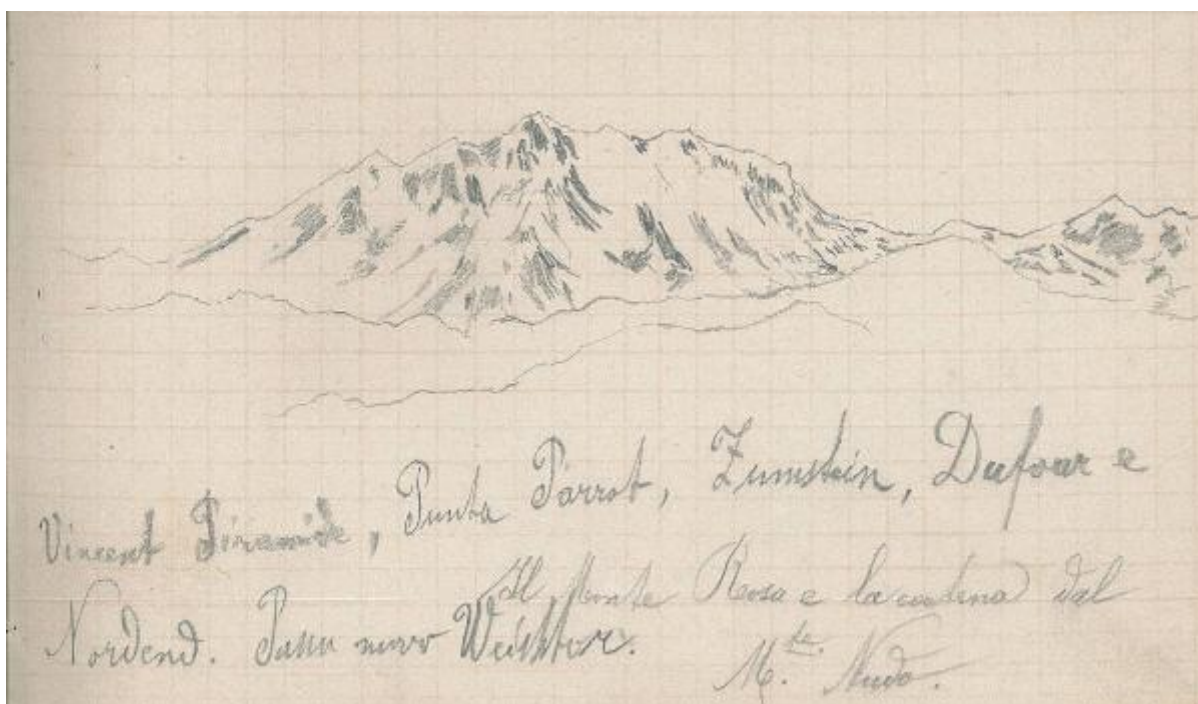 Vincent Piramide, Punta Parrot, Zumstein, Dufour e
Nordend. nuovo Weissthor.
Il Monte Rosa e la catena dal
M.te Nudo.